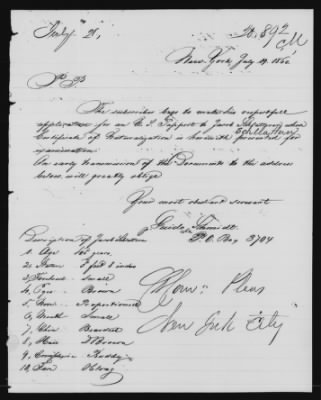 July 21,
20,892
New York, July 19. 1860
The subscriber begs to make his respectfull
application for an U. S. Passport to Jacob whose
Certificate of Naturalization is herewith presented for
examination.
An early transmission of the Documents to the address
below, will greatly oblige
Your most obedient servant
Guido Schmidt
P. O. Box, 3704
Description of Jacob
1. Age years,
2, 5 feet 8 inches
3, Forehead Small
4, Eyes Brown
5, Proportioned
6, Mouth Small
7, Chin Bearded
8, Hair Brown
9, Complexion Ruddy
10, Face Oblong
Com: Pleas
New York City